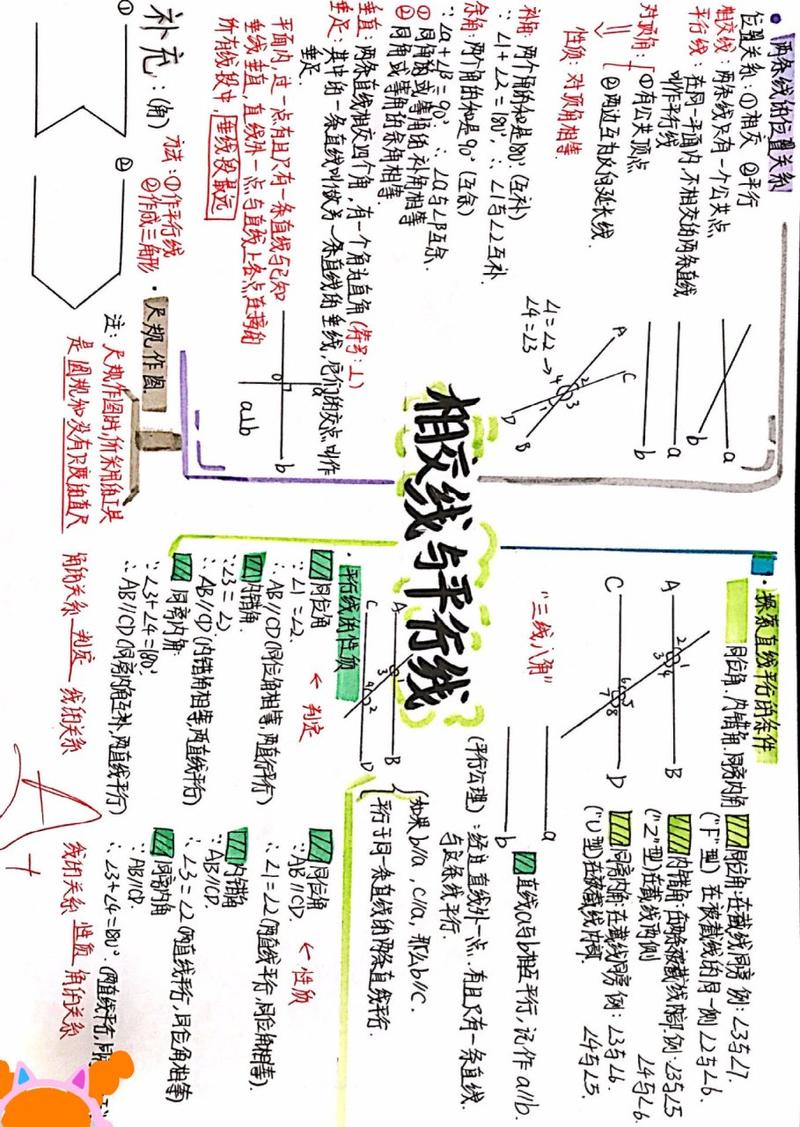 相交线与平行线
两条线的位置关系
位置关系:①相交 ②平行
相交线:两条线只有一个公共点
平行线:在同一平面内,不相交的两条直线
叫作平行线
a
b
a
b
对顶角:①有公共顶点
②两边互为反向延长线
性质:对顶角相等
∠1=∠2
∠4=∠3
A
C
D
B
4
2
3
1
补角:两个角的和是180°(互补)
∵∠1+∠2=180°,∴∠1与∠2互补.
余角:两个角的和是90°(互余)
①同角的或等角的补角相等
②同角或等角的余角相等
垂直:两条直线相交四个角,有一个角为直角(符号:⊥)
垂足:其中的一条直线叫做另一条直线的垂线,它们的交点叫作
垂足
平面内,过一点有且只有一条直线与已知
直线外一点与直线上各点连接的
所有线段中,
a
b
a⊥b
补充:(角)
方法:①作平行线
②作成三角形
①
②
尺规作图
注:尺规作图时,所采用的工具
是圆规和没有尺度的直尺
探索直线平行的条件
同位角、内错角、同旁内角
A
B
C
D
2
1
3
4
6
5
7
8
"三线八角"
同位角:在截线同旁 例:∠3与∠7.
("F"型) 在被截线的同一侧 ∠2与∠6.
("Z"型)在截线两侧 ∠4与∠6.
同旁内角:在截线同旁 例:∠3与∠6.
("U型)在被截线内部. ∠4与∠5.
a
b
直线a与b相互平行,记作a//b.
(平行公理):经过直线外一点,有且只有一条直线
如果b//a,c//a,那么b//c.
平行于同一条直线的两条直线平行.
平行线的性质
A
B
C
D
3
1
4
2
同位角 ← 判定
∵∠1=∠2.
∴AB//CD(同位角相等,两直行平行)
内错角
∵∠3=∠2
∴AB//CD(内错角相等,两直线平行)
同旁内角
∵∠3+∠4=180°,
∴AB//CD(同旁内角互补,两直线平行)
角的关系 判定 线的关系
同位角 ← 性质
∵AB//CD.
∴∠1=∠2(两直线平行,同位角相等).
内错角
∵AB//CD.
同旁内角
∵AB//CD.
线的关系 性质 角的关系
A+